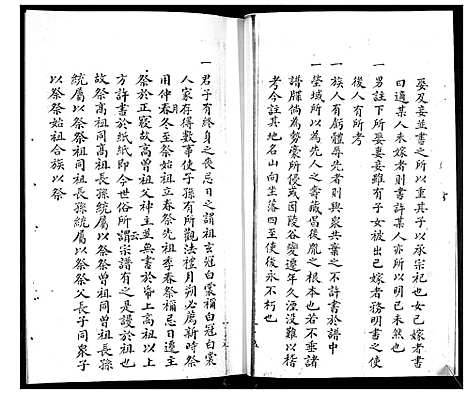 娶及妾並書之所以重其子以承宗祀也女已嫁者書
曰適某人未嫁者則書許某人亦所以明已未然也
一男註下所娶妻妾雖有子女被出已嫁者務明書之使
後人有所考
一族人有虧體辱先者則與衆共棄之不許書於譜中
一塋域所以為先人之壽藏昌後胤之根本也若不垂諸
譜牒倘為勢豪所侵或因陵谷變遷年久湮没難以稽
考今註其地名山向坐落四至使後永不朽也
一君子有終身之喪忌日之謂祖玄冠白裳禰白冠白裳
人家存得數事使子孫有所觀法禮月朔以薦新時祭
用仲月冬至祭始祖立春祭先祖季春祭禰忌日遷主
祭於正寢故高曾祖父神主並無書於帋上高祖以上
方許書於紙紙即今世俗所謂宗譜有之是謾於祖也
故祭高祖同高祖長孫統屬以祭祭曾祖同曾祖長孫
統屬以祭祭祖同祖長孫統屬以祭祭父長子同衆子
以祭祭始祖合族以祭